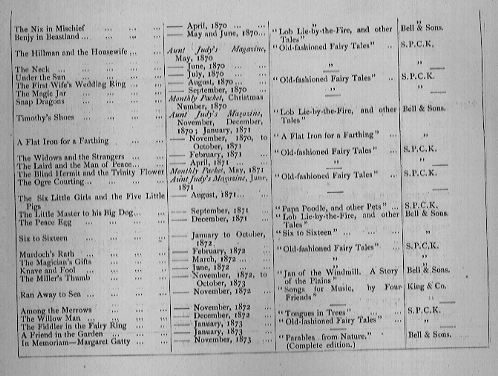 The Nix in Mischief ... ... ... — April, 1870 ... ... „ Bell & Sons.
Benjy in Beastland... ... ... ... — May and June, 1870... "Lob Lie-by-the-Fire, and other Tales"
The Hillman and the Housewife ... ... Aunt Judy's Magazine, May, 1870 "Old-fashioned Fairy Tales" .. S.P.C.K.
The Neck ... ... ... ... — June, 1870 ... ... „ „
Under the Sun ... ... ... — July, 1870... ...
The First Wife's Wedding Ring ... ... — August, 1870... ... "Old-fashioned Fairy Tales" ... S.P.C.K.
The Magic Jar ... ... ... — September, 1870 ... „ „
Snap Dragons ... ... ... Monthly Packet, Christmas Number, 1870
Timothy's Shoes ... ... ... Aunt Judy's Magazine, November, December, 1870; January, 1871 "Lob Lie-by-the-Fire, and other Tales" Bell & Sons.
A Flat Iron for a Farthing ... ... — November, 1870, to October, 1871 "A Flat Iron for a Farthing" ... „
The Widows and the Strangers ... ... — February, 1871 ... "Old-fashioned Fairy Tales" ... S.P.C.K.
The Laird and the Man of Peace... ... — April, 1871 ... „ „
The Blind Hermit and the Trinity Flower Monthly Packet, May, 1871
The Ogre Courting... ... ... ... Aunt Judy's Magazine, June, 1871 "Old-fashioned Fairy Tales" ... S.P.C.K.
The Six Little Girls and the Five Little Pigs — August, 1871...
The Little Master to his Big Dog... ... — September, 1871 ... "Papa Poodle, and other Pets" ... S.P.C.K.
The Peace Egg ... ... ... — December, 1871 ... "Lob Lie-by-the-Fire, and other Tales" Bell & Sons.
Six to Sixteen ... ... ... — January to October, 1872 "Six to Sixteen" ... ... „
Murdoch's Rath ... ... ... — February, 1872 ... "Old-fashioned Fairy Tales" ... S.P.C.K.
The Magician's Gifts ... ... ... — March, 1872 ... „ „
Knave and Fool ... ... ... — June, 1872 ...
The Miller's Thumb ... ... ... — November, 1872, to October, 1873 "Jan of the Windmill. A Story of the Plains" Bell & Sons.
Ran Away to Sea ... ... ... — November, 1872 ... "Songs for Music, by Four Friends" King & Co.
Among the Merrows ... ... ... — November, 1872 ...
The Willow Man ... ... ... — December, 1872 ... "Tongues in Trees" ... ... S.P.C.K.
The Fiddler in the Fairy Ring ... ... — January, 1873 ... "Old-fashioned Fairy Tales" .. „
A Friend in the Garden ... ... — January, 1873 ...
In Memoriam—Margaret Gatty ... ... — November, 1873 ... "Parables from Nature." (Complete edition.) Bell & Sons.